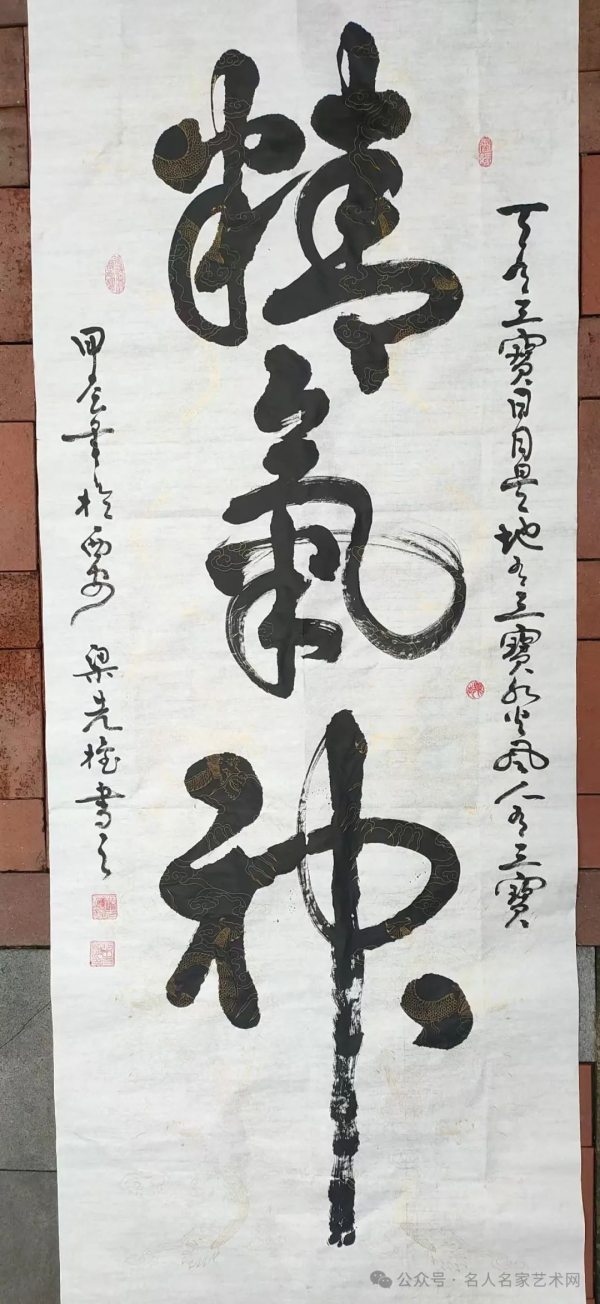 天有三寶日月星地有三寶水火風人有三寶
精氣神
甲辰年於西安 梁先桂書之
公众号·名人名家艺术网